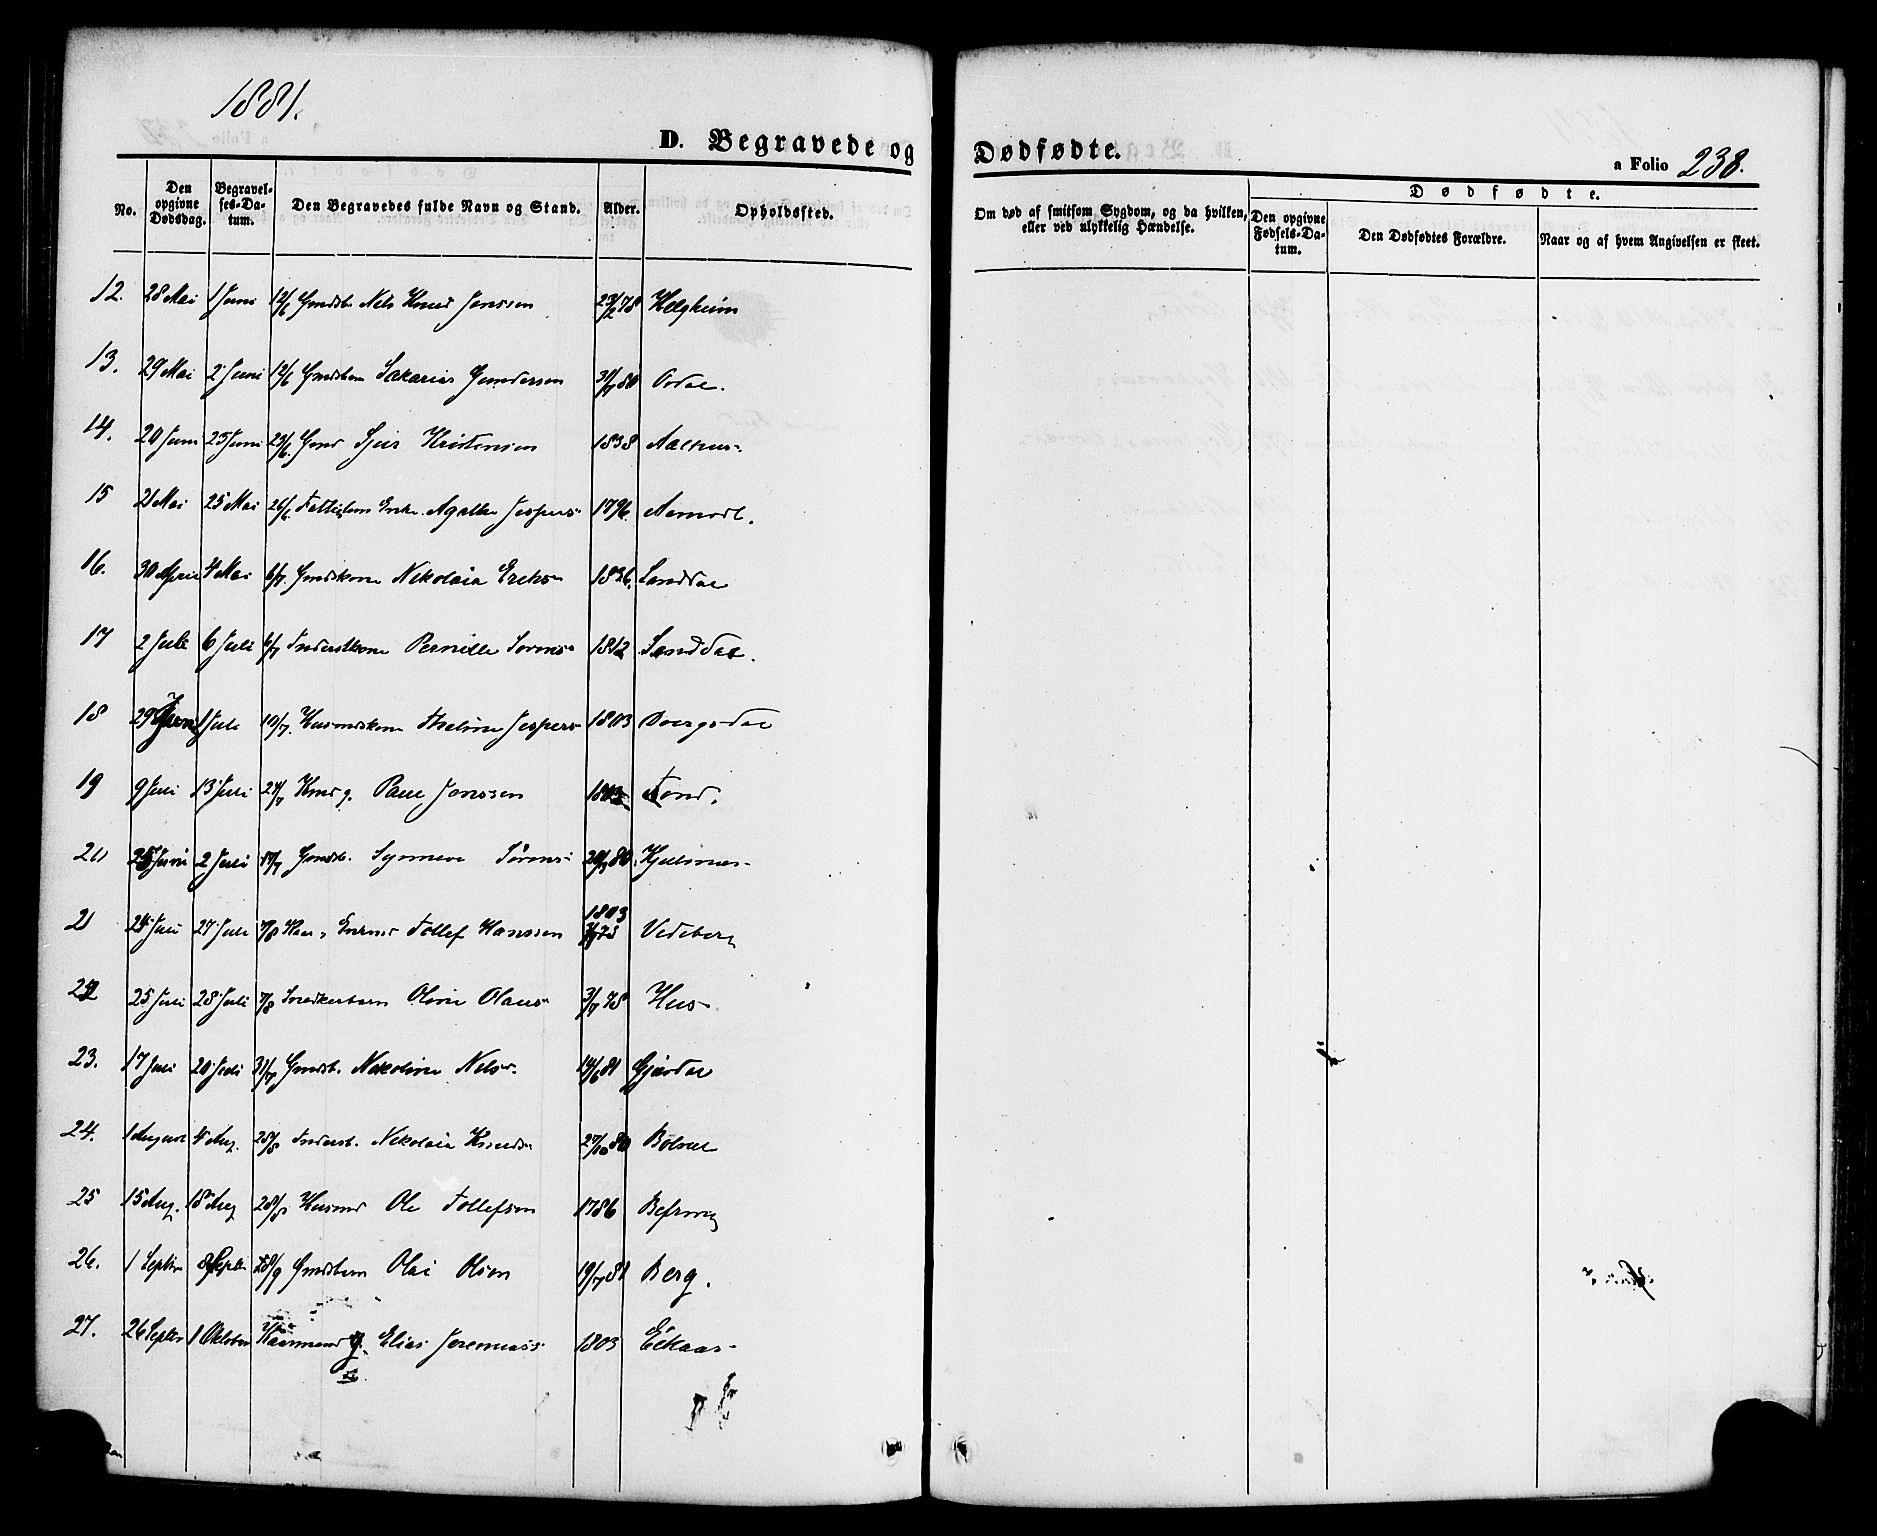 1881.
D. Begravede og Dødfødte.
a Folio 238.
No.
Den opgivne Dødsdag.
Begravelses-Datum.
Den Begravedes fulde Navn og Stand.
Alder.
Opholdssted.
Om død af smitsom Sygdom, og da hvilken, eller ved ulykkelig Hændelse.
Dødfødte.
Den opgivne Fødsels-Datum.
Den Dødfødtes Forældre.
Naar og af hvem Angivelsen er skeet.
12. 28 Mai 1 Juni 12/6 Gmdsb. Nils Knud Jonssen 78 Helgheim
13. 29 Mai 2 Juni 12/6 Gmdsbarn Sakarias Gundersen 80
14. 20 Juni 23 Juni 23/6 Gmd Sjur Kristensen 1838 Aalhus
15 21 Mai 25 Mai 26/6 Enke Agathe Jespers 1796.
16. 30 April 4 Mai 6/7. Gmdskone Nikolaia Eriks 1836. Sanddal
17 2 Juli 6 Juli 6/7 Inderstkone Pernille Sørens 1812 Sanddal.
18 29 Juni 1 Juli 10/7. Husmdskone Jespers 1803 Bergsdal
19 9 Juli 13 Juli 24/7 Kmd g. Paul Jonssen
20 Juni 2 Juli 17/7 Gmdsb. Synneve Sørens 80
21 Juli 27 Juli 7/8 Tollef Hanssen 1803
22 25 Juli 28 Juli 7/8 Snedkerbarn Oline Olaus 3/7 78 Hus
23. 17 Juli 20 Juli 31/7 Gmdsb. Nikoline Nels 14/6 81
24. 1 August 4 Aug. 28/8 Inderstb. Nikolaia Knuds 27/10 80
25 15 Aug. 18 Aug 28/8 Husmd Ole Tollefsen 1786 Befring
26. 1 Septbr 8 Septbr 18/9 Gmdsbarn Olai Olsen 19/7 81 Berg.
27. 26 Septbr 1 Oktober g. Elias Jeremiass 1803 Eikaas